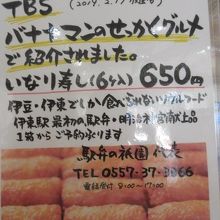 TBS (2019.2.17放送)
バナナマンのせっかくグルメ
で紹介されました。
いなり寿し(6ヶ入) 650円
伊豆・伊東でしか食べられないソウルフード
伊東駅 最初の駅弁・明治神宮献上品
1箱からご予約承ります
駅弁の祇園 代表
TEL 0557-37-3366
電話受付 8:00〜17:00